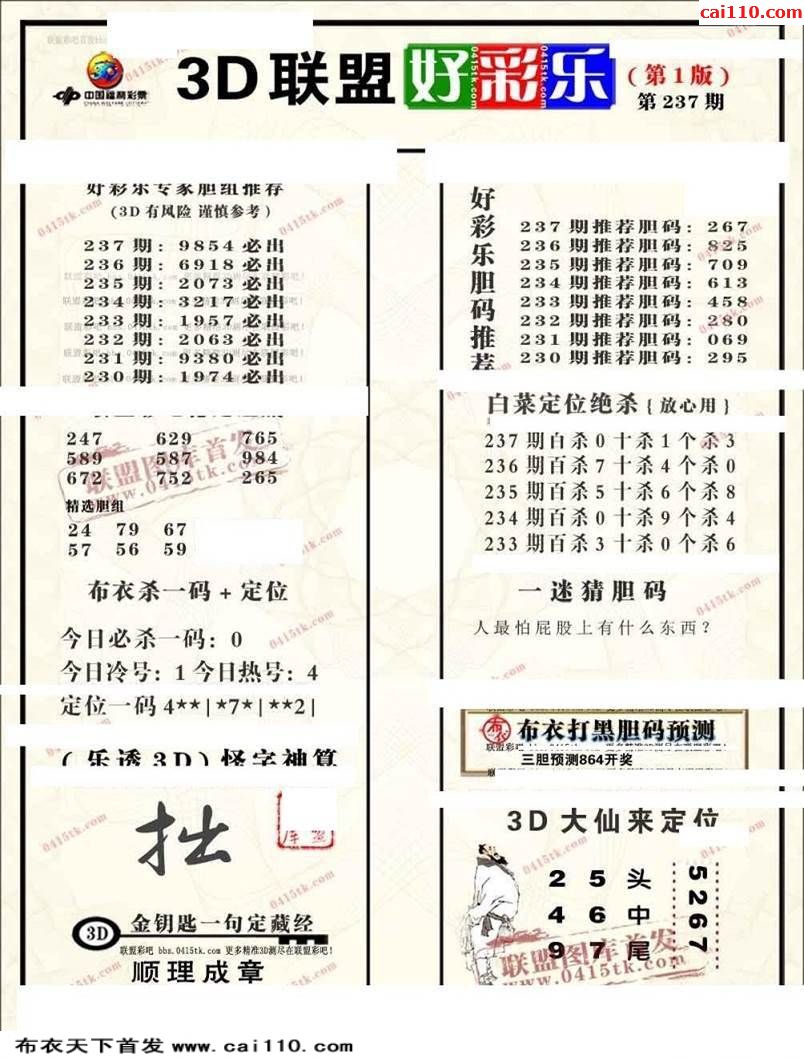 cai110.com
中国福利彩票
CHINA WELFARE LOTTERY
3D联盟好彩乐
(第1版)
第237期
好彩乐专家胆组推荐
(3D有风险 谨慎参考)
237期: 9854必出
236期: 6918必出
235期: 2073必出
234期: 3217必出
233期: 1957必出
232期: 2063必出
231期: 9380必出
230期: 1974必出
247 629 765
589 587 984
672 752 265
联盟图库首发
www.0415tk.com
精选胆组
24 79 67
57 56 59
布衣杀一码+定位
今日必杀一码: 0
今日冷号: 1 今日热号: 4
定位一码4**|*7*|**2|
(乐透3D)怪字神算
拙
3D
金钥匙一句定藏经
联盟彩吧 bbs.0415tk.com 更多精准3D测尽在联盟彩吧!
顺理成章
好彩乐胆码推荐
237期推荐胆码: 267
236期推荐胆码: 825
235期推荐胆码: 709
234期推荐胆码: 613
233期推荐胆码: 458
232期推荐胆码: 280
231期推荐胆码: 069
230期推荐胆码: 295
白菜定位绝杀{放心用}
237期百杀0十杀1个杀3
236期百杀7十杀4个杀0
235期百杀5十杀6个杀8
234期百杀0十杀9个杀4
233期百杀3十杀0个杀6
一迷猜胆码
人最怕屁股上有什么东西?
布衣打黑胆码预测
三胆预测864开奖
3D大仙来定位
2 5 头
4 6 中
9 7 尾
5267
联盟图库首发
www.0415tk.com
布衣天下首发 www.cai110.com